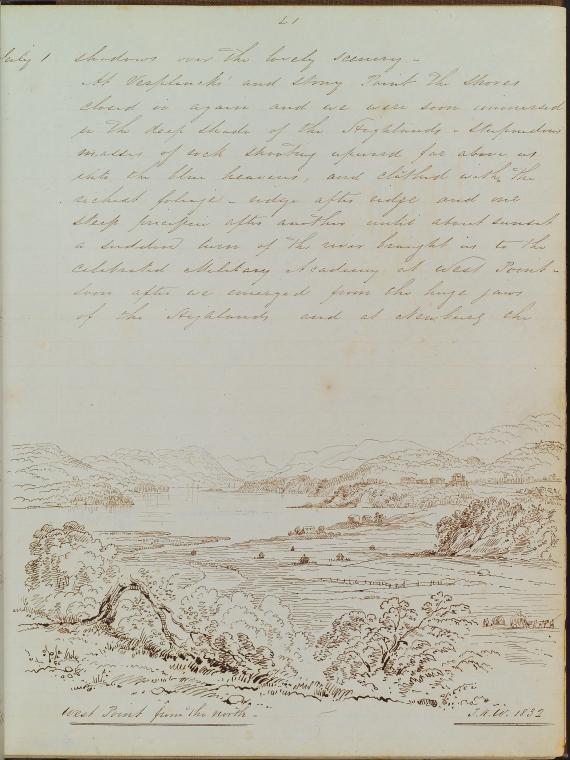 21
July 1 shadows over the lovely scenery –
At Verplancks' and Stony Point the shores
closed in again and we were soon immersed
in the deep shade of the Highlands – stupendous
masses of rock shooting upward far above us
into the blue heavens, and clothed with the
richest foliage – ridge after ridge and one
steep precipice after another until about sunset
a sudden turn of the river brought us to the
celebrated Military Academy at West Point –
soon after we emerged from the huge jaws
of the Highlands and at Newburg the
West Point from the north –
1832